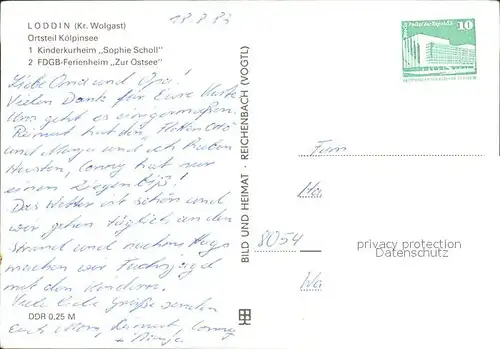 18.8.83
LODDIN (Kr. Wolgast)
Ortsteil Kölpinsee
1 Kinderkurheim „Sophie Scholl"
2 FDGB-Ferienheim „Zur Ostsee"
10
Liebe Oma und Opa!
Vielen Dank für Eure Karte
Uns geht es einigermaßen.
Reimut hat den Flotten Otto
und Manja und ich haben
Husten, Conny hat nur
einen Ziegenbiß!
Das Wetter ist schön und
wir gehen täglich an den
Strand und
machen wir Fuchsjagd
mit den Kindern.
Viele liebe Grüße senden
Euch Reimut, Conny
+ Manja
DDR 0,25 M
BILD UND HEIMAT · REICHENBACH (VOGTL)
Fam
8054
privacy protection
Datenschutz